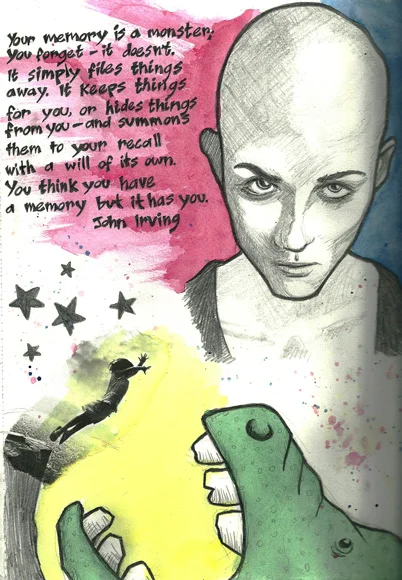 Your memory is a monster;
You forget - it doesn't.
It simply files things
away. It keeps things
for you, or hides things
from you - and summons
them to your recall
with a will of its own.
You think you have
a memory but it has you.
John Irving